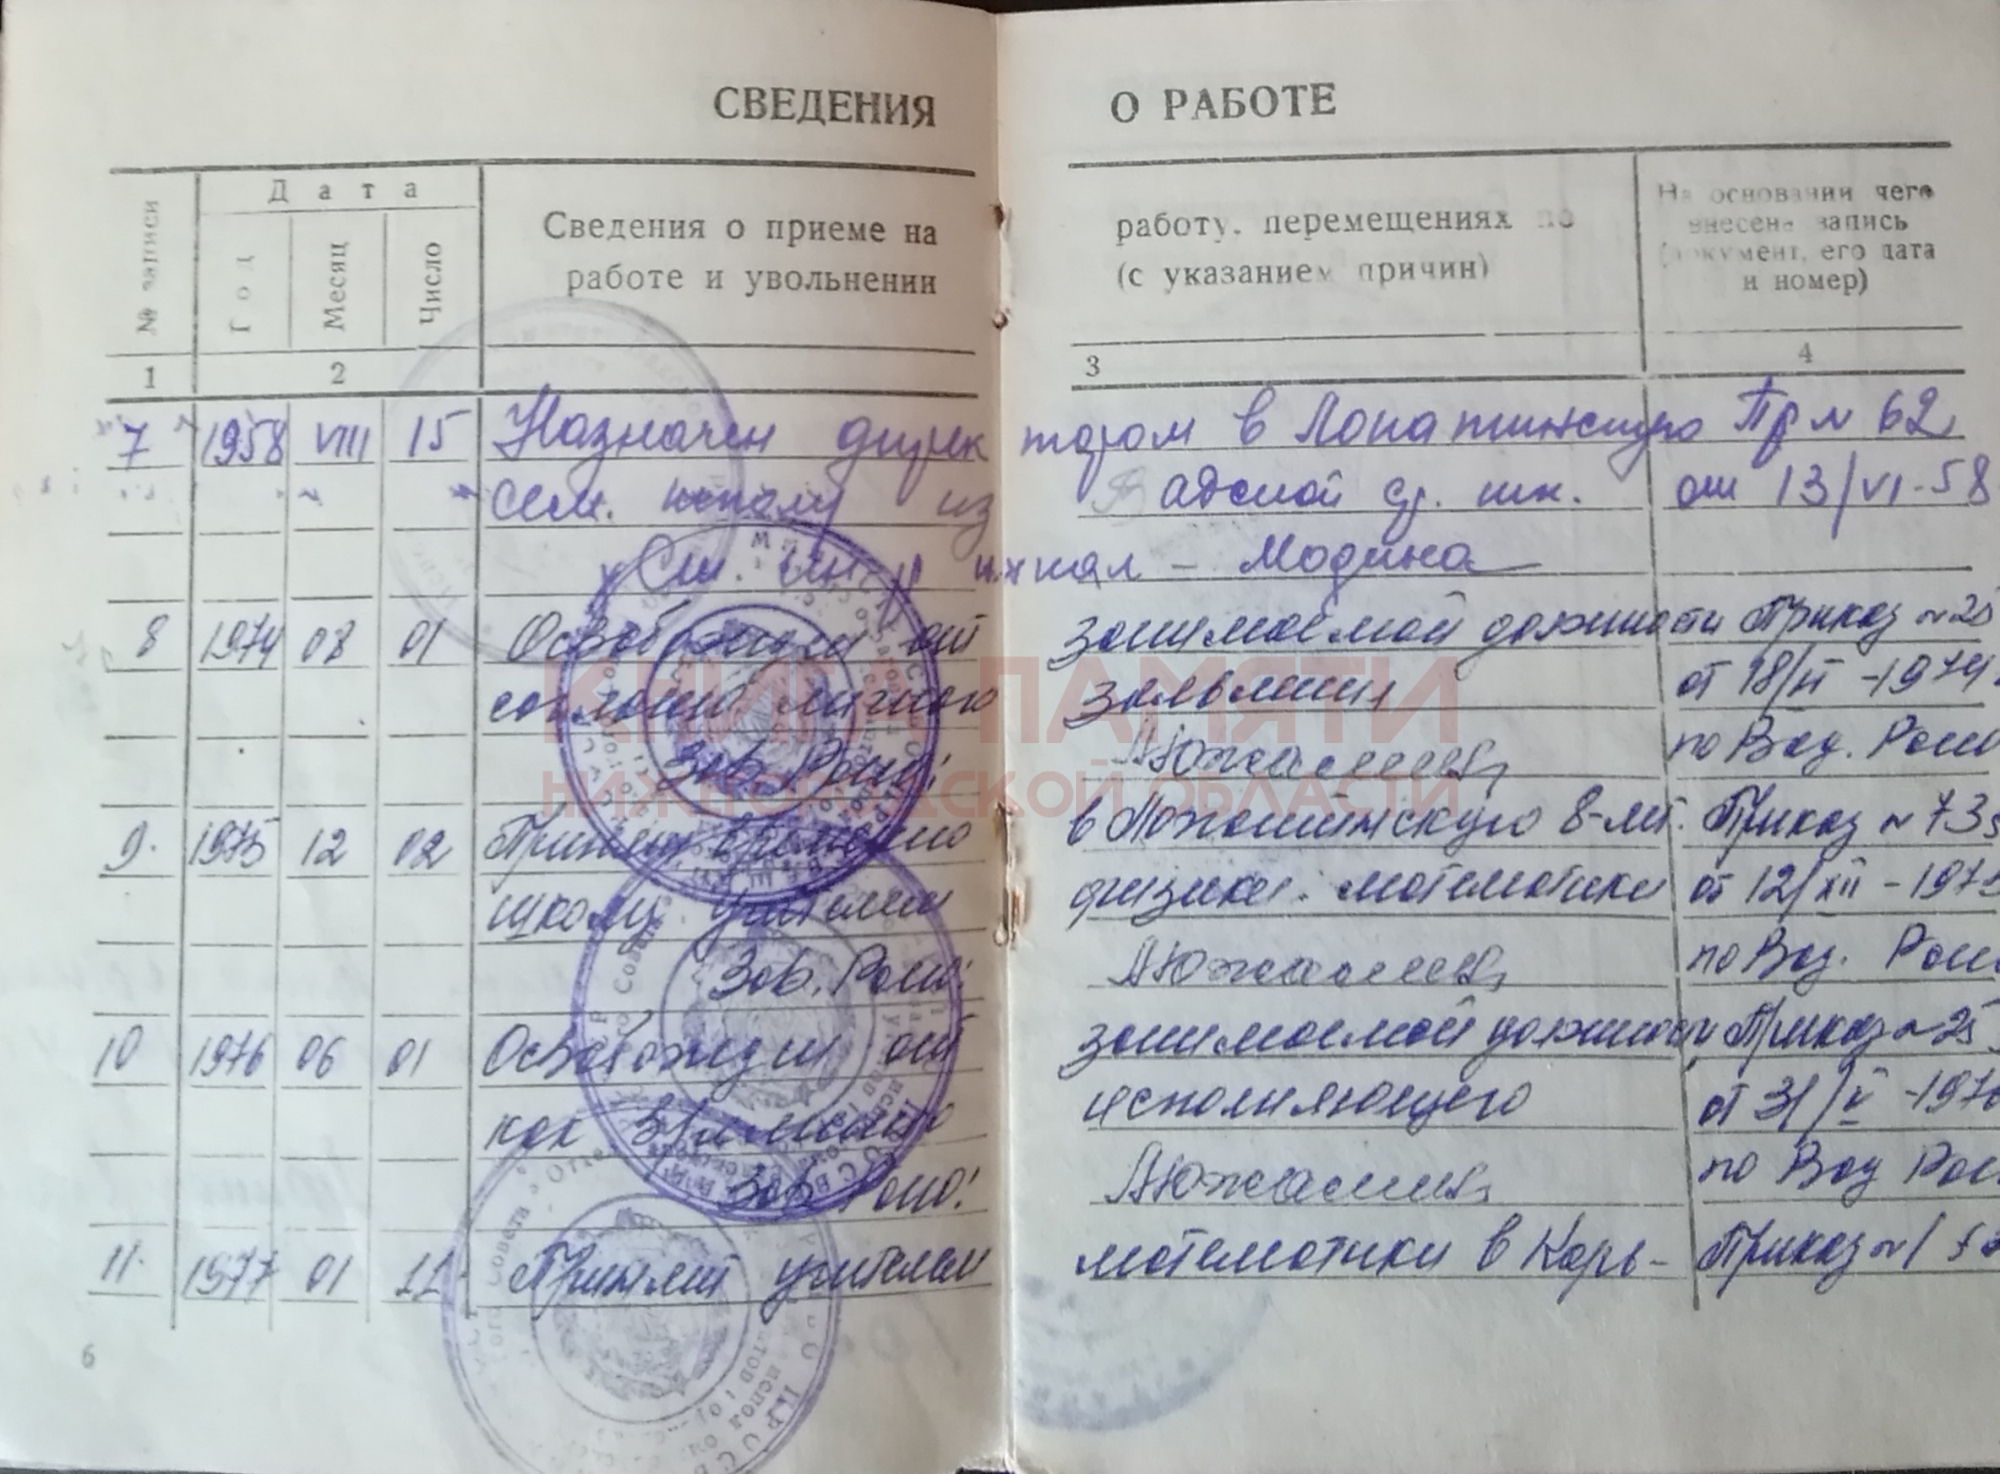 СВЕДЕНИЯ О РАБОТЕ
№ записи
Дата
Год
Месяц
Число
Сведения о приеме на работу, перемещениях по
работе и увольнении (с указанием причин)
На основании чего
внесена запись
(документ, его дата
и номер)
1 2 3 4
7 1958 VIII 15 Назначен директором в Лопатинскую Пр № 62
сем. школу из адской ср. шк. от 13/VI-58
Ст. инсп Модина
8 1974 08 01 Освобожден от занимаемой должности Приказ № 25
согласно личного заявления от 18/ -1974
Зав. Роно: по Вад. Роно
9. 1975 12 02 Принят временно в Лопатинскую 8-м. Приказ № 73
школу учителем физики. математики от 12/XII-197
Зав. Роно: по Вад. Роно
10 1976 06 01 Освобожден от занимаемой должности Приказ № 25
как временно исполняющего от 31/V-197
Зав. Роно: по Вад Роно
11. 1977 01 11 Принят учителем математики в Карь- Приказ № 1
6
КНИГА ПАМЯТИ
НИЖЕГОРОДСКОЙ ОБЛАСТИ